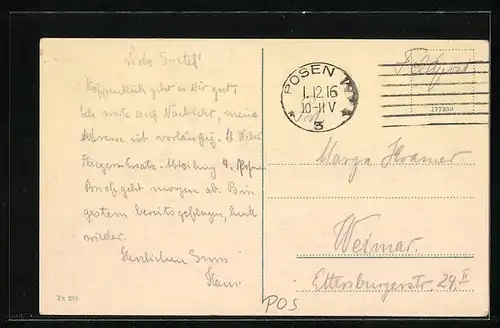 Hoffentlich geht es Dir gut.
Ich warte auf Nachricht, meine
Adresse ist vorläufig:
Flieger-Ersatz-Abteilung 4. Posen
Brief geht morgen ab. Bin
gestern bereits geflogen, heute
wieder.
Herzlichen Gruss
Hans
XX 293
POSEN
1.12.16
10-11V
* 3 *
Feldpost
177250
Marga Kramer
Weimar.
Ettersburgerstr. 29 II
POS